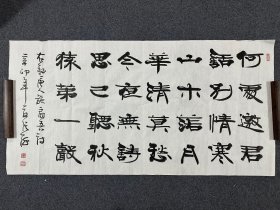 何處邀君
話別情寒
山木落月
華清莫愁
今夜無詩
思已聽秋
猿第一聲
唐人施肩吾詩